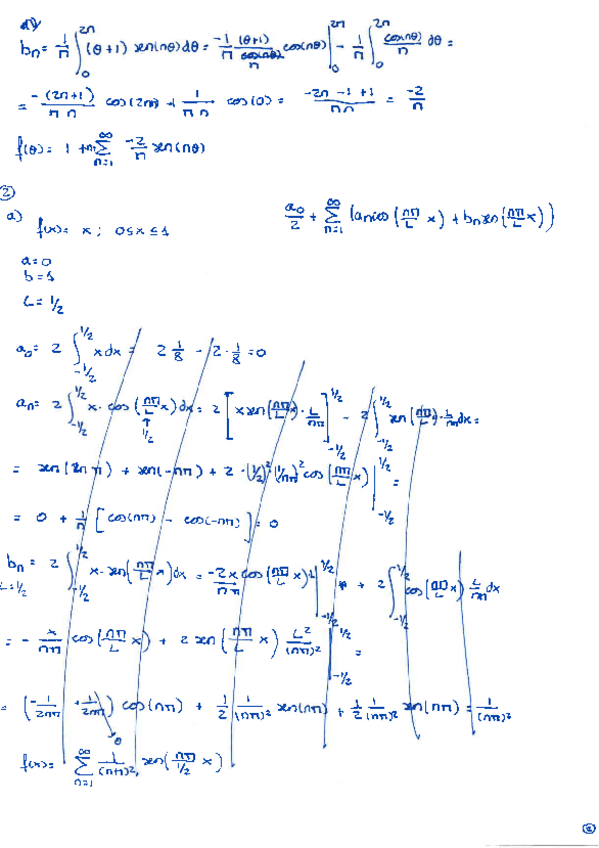 bₙ = 1/π ∫₀^{2π} (θ+1) sen(nθ)dθ = -1/π (θ+1)/n cos(nθ) |₀^{2π} - 1/π ∫₀^{2π} cos(nθ)/n dθ =
= -(2π+1)/(π n) cos(2πn) + 1/(π n) cos(0) = (-2π -1 +1)/(π n) = -2/n
f(θ) = 1 + π + ∑_{n=1}^{∞} -2/n sen(nθ)
②
a) f(x) = x ; 0 ≤ x ≤ 1
a₀/2 + ∑_{n=1}^{∞} (aₙ cos(nπ/L x) + bₙ sen(nπ/L x))
a = 0
b = 1
L = 1/2
a₀ = 2 ∫_{-1/2}^{1/2} x dx = 2 1/8 - 2 · 1/8 = 0
aₙ = 2 ∫_{-1/2}^{1/2} x · cos(nπ/L x)dx = 2 [x sen(nπ/L x) · L/nπ]_{-1/2}^{1/2} - 2 ∫_{-1/2}^{1/2} sen(nπ/L x) · L/nπ dx =
↑
1/2
= sen(2nπ) + sen(-nπ) + 2 · (1/2)² (1/nπ)² cos(nπ/L x) |_{-1/2}^{1/2} =
= 0 + 1/n [cos(nπ) - cos(-nπ)] = 0
bₙ = 2 ∫_{-1/2}^{1/2} x · sen(nπ/L x)dx = -2x/nπ cos(nπ/L x) L |_{-1/2}^{1/2} + 2 ∫_{-1/2}^{1/2} cos(nπ/L x) L/nπ dx
L = 1/2
= - x/nπ cos(nπ/L x) + 2 sen(nπ/L x) L²/(nπ)² |_{-1/2}^{1/2} =
= (-1/2nπ + 1/2nπ) cos(nπ) + 1/2 1/(nπ)² sen(nπ) + 1/2 1/(nπ)² sen(nπ) = 1/(nπ)²
0
f(x) = ∑_{n=1}^{∞} 1/(nπ)² sen(nπ/1/2 x)